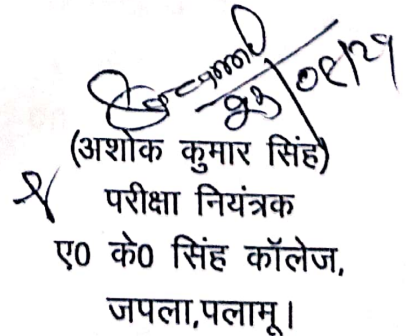 (अशोक कुमार सिंह)
परीक्षा नियंत्रक
ए0 के0 सिंह कॉलेज,
जपला,पलामू।